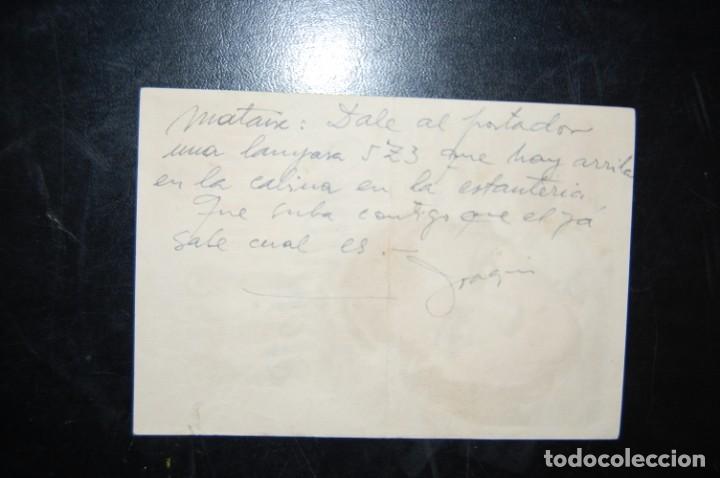 Mataix: Dale al portador
una lampara 5Z3 que hay arriba
en la cabina en la estanteria
Que suba contigo que el yá
sabe cual es.—
Joaquin
todocoleccion
todocoleccion.net